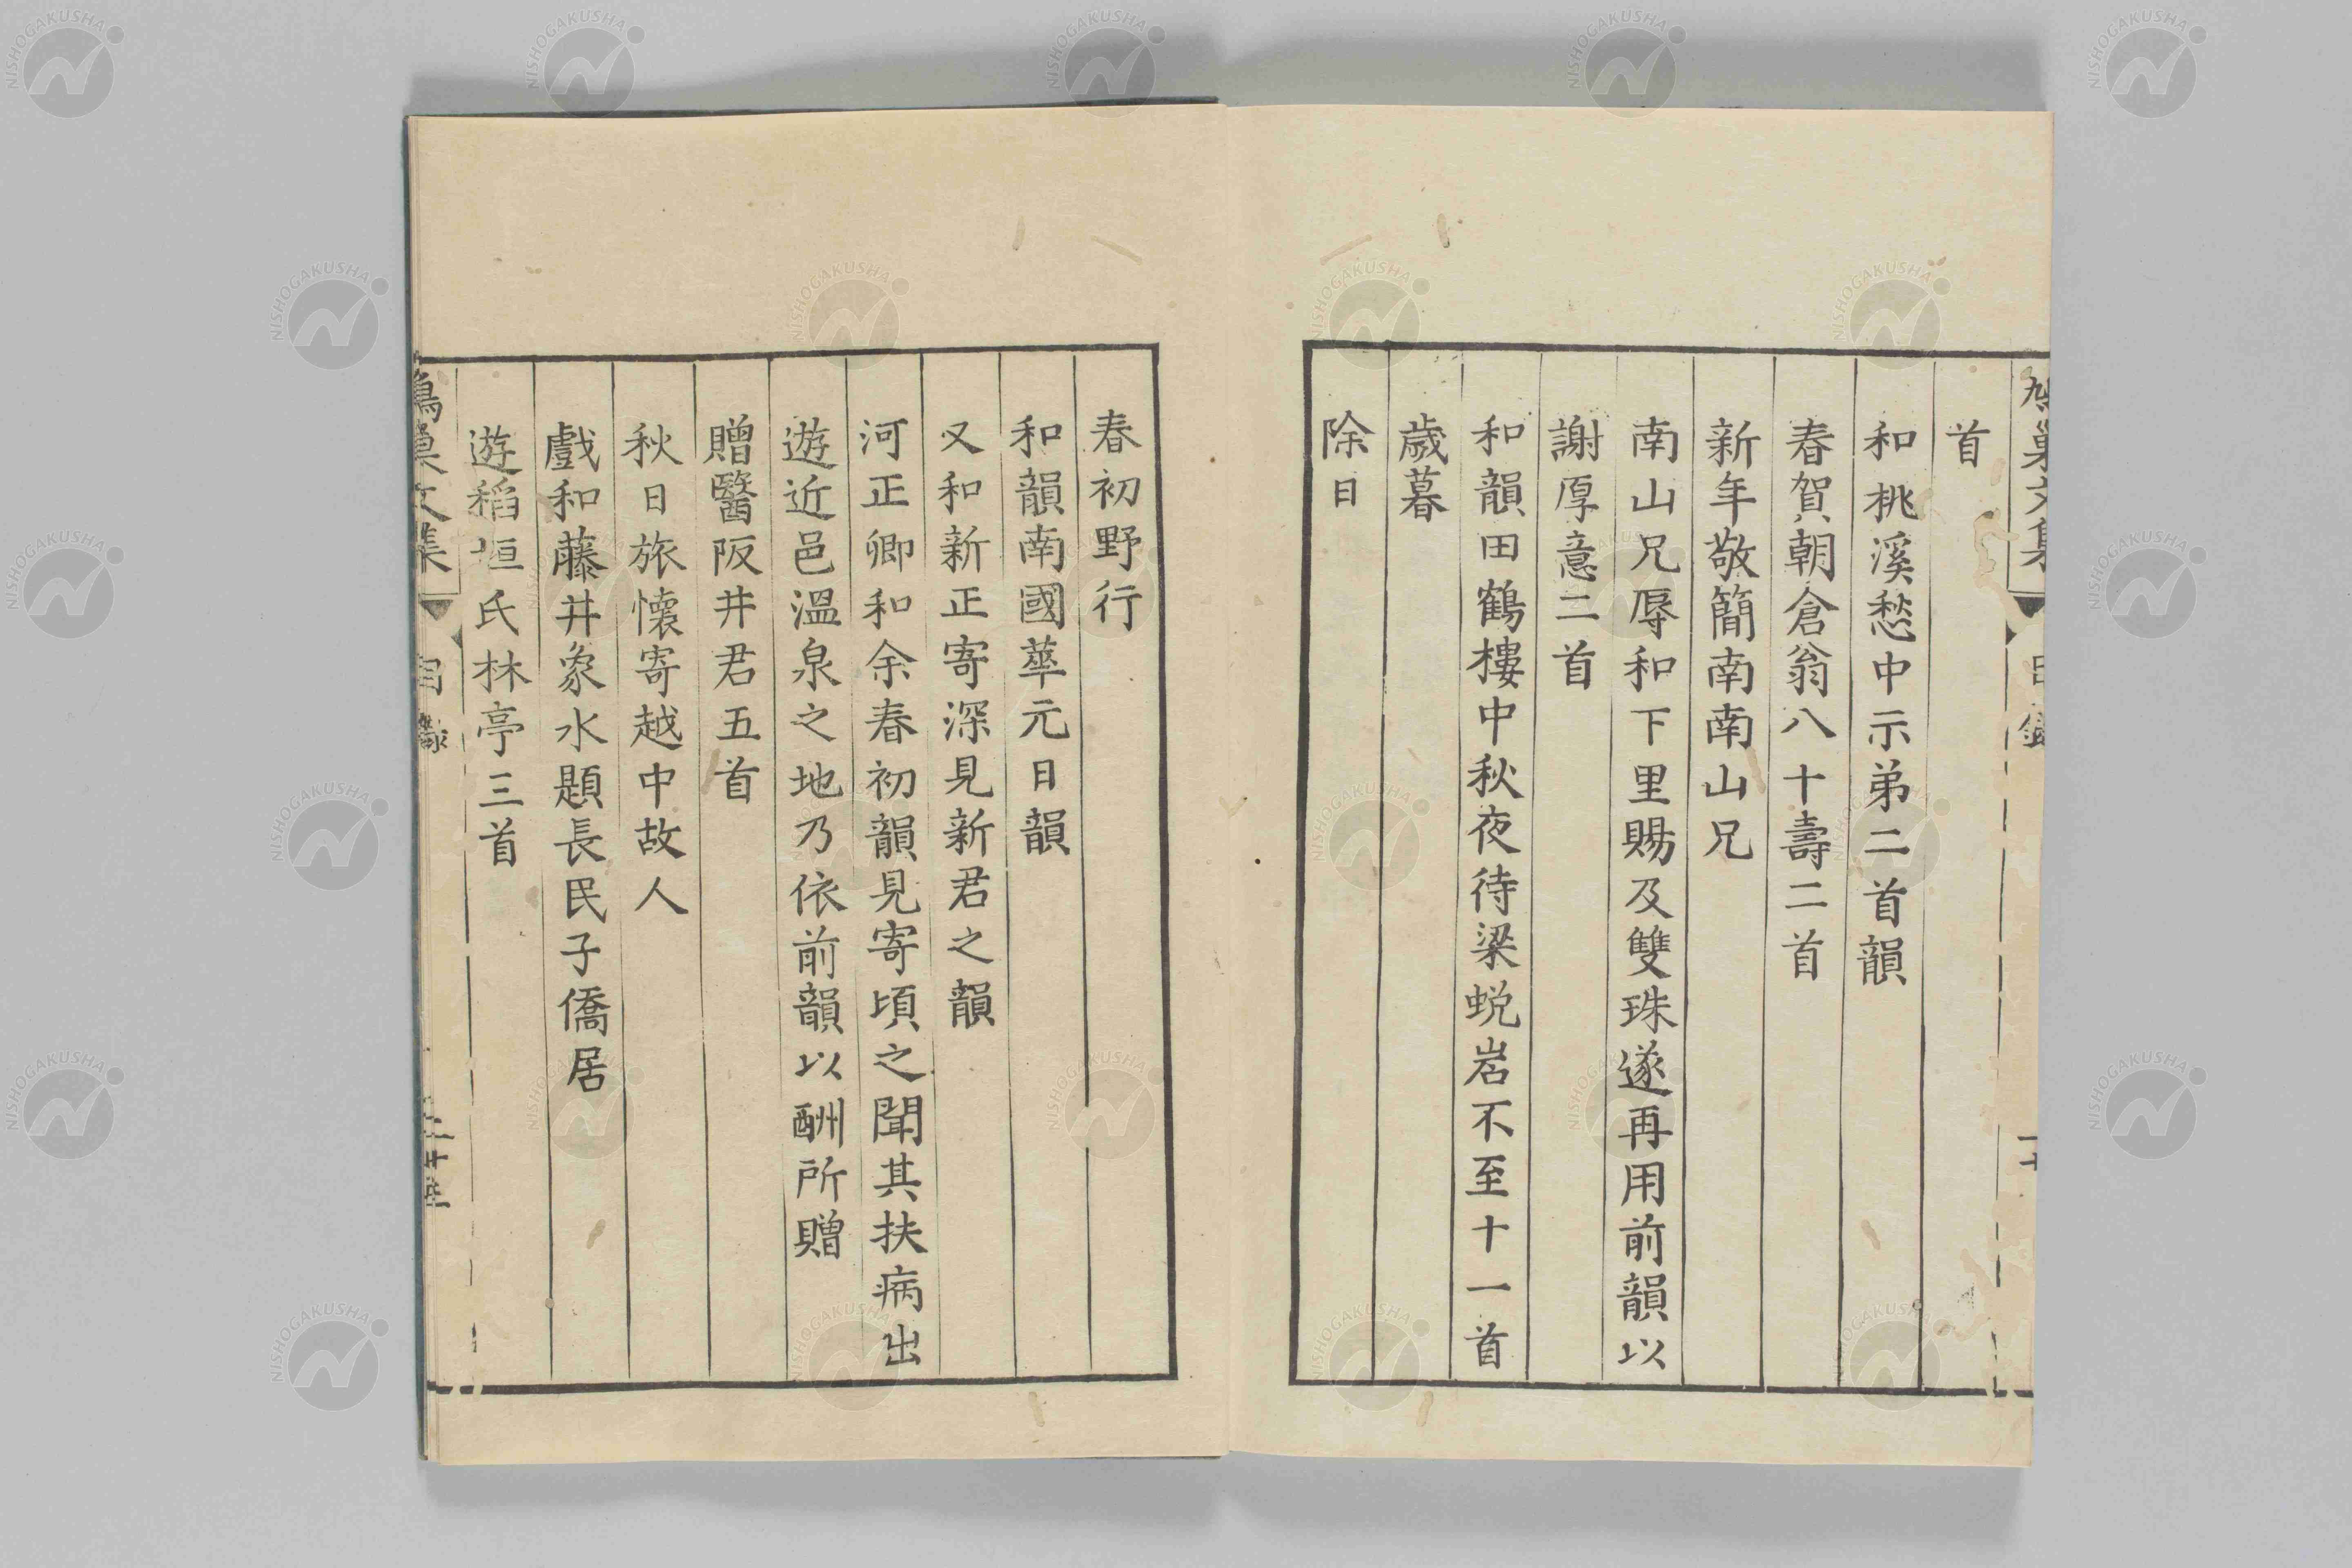 鳩巢文集
目録
首
和桃溪愁中示弟二首韻
春賀朝倉翁八十壽二首
新年敬簡南南山兄
南山兄辱和下里賜及雙珠遂再用前韻以
謝厚意二首
和韻田鶴樓中秋夜待梁蛻岩不至十一首
歳暮
除日
春初野行
和韻南國華元日韻
又和新正寄深見新君之韻
河正卿和余春初韻見寄頃之聞其扶病出
遊近邑溫泉之地乃依前韻以酬所贈
贈醫阪井君五首
秋日旅懷寄越中故人
戲和藤井象水題長民子僑居
遊稻垣氏林亭三首
鳩巢文集
目録
NISHOGAKUSHA